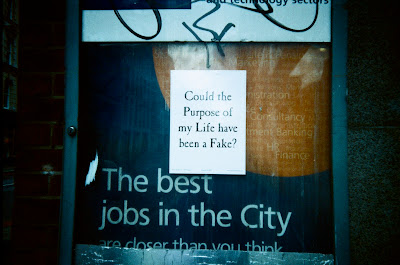 and technology sectors
Could the
Purpose of
my Life have
been a Fake?
Consultancy
Finance
The best
jobs in the City
are closer than you think